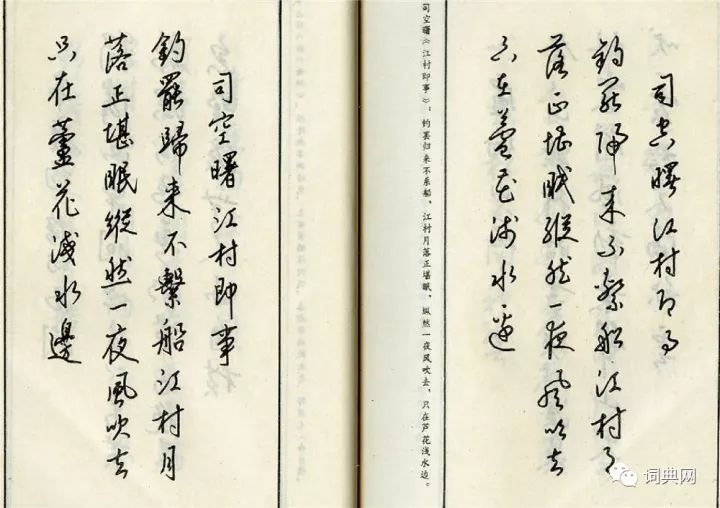 司空曙江村即事
釣罷歸來不繫船江村月
落正堪眠縱然一夜風吹去
只在蘆花淺水邊
司空曙《江村即事》：钓罢归来不系船，江村月落正堪眠，纵然一夜风吹去，只在芦花浅水边。
司空曙江村即事
釣罷歸来不繫船江村月
落正堪眠縱然一夜風吹去
只在蘆花淺水邊
词典网